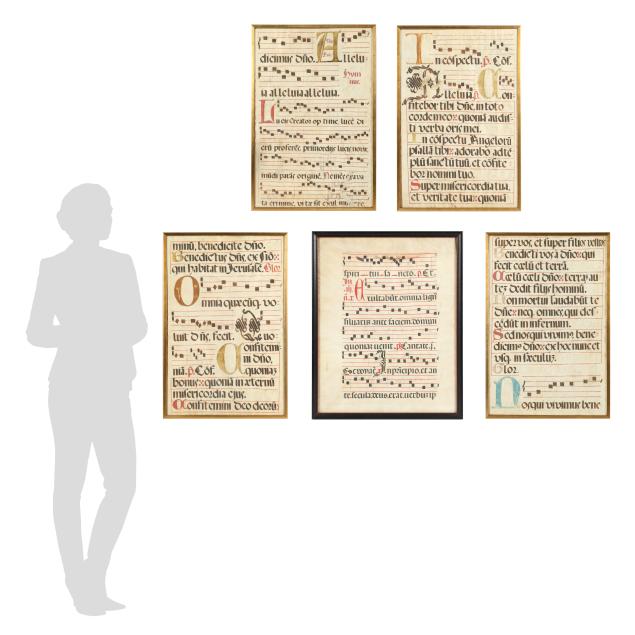 A
dicimus dño. Allelu
Hym
nus.
ia alleluia alleluia.
Lucis Creator optime lucẽ di
erũ proferẽs primordijs lucis novę
mũdi parãs originẽ.
ta crimine, vitæ sit exul
In cõspectu. p. Cõf.
Alleluia. Con
fitebor tibi dñe, in toto
corde meo: quoniã audis
ti verba oris mei.
In cõspectu Angelorũ
psallã tibi: adorabo ad tẽ
plũ sanctũ tuũ, et cõfite
bor nomini tuo.
Super misericordia tua,
et veritate tua: quoniã
minũ, benedicite dño.
Benedictus dñs, ex Siõ:
qui habitat in Jerusalẽ. Glor
Omnia quæcũq. vo
luit dñs, fecit. Quo
Confitemi
ni dño,
niã. p. Cõf. quoniã
bonus: quoniã in æternũ
misericordia ejus.
Confitemini deo deorũ:
spiri tui sancto. p. Cã
Exultabũt omnia lign
silvarum ante faciem domini
quoniam venit. p. Cantate. j.
In principio, et an
te secula deus erat verbũ ip
super vos, et super filios vestros
Benedicti vos à dño: qui
fecit cœlũ et terrã.
Cœlũ cœli dño: terrã au
tẽ dedit filijs hominũ.
Non mortui laudabũt te
dñe: neq. omnes, qui des
cẽdũt in infernum.
Sed nos qui vivimus, bene
dicimus dño: ex hoc nunc et
usq. in sæculũ.
Glor.
Nos qui vivimus bene